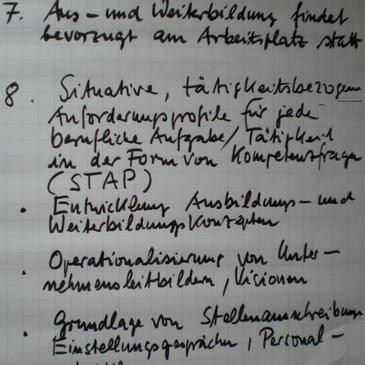 7. Aus- und Weiterbildung findet
bevorzugt am Arbeitsplatz statt
8. Situative, tätigkeitsbezogene
Anforderungsprofile für jede
berufliche Aufgabe/Tätigkeit
in der Form von Kompetenzfragen
(STAP)
• Entwicklung Ausbildungs- und
Weiterbildungskonzepten
• Operationalisierung von Unter-
nehmensleitbildern, Visionen
• Grundlage von Stellenausschreibung
Einstellungsgespräche, Personal-